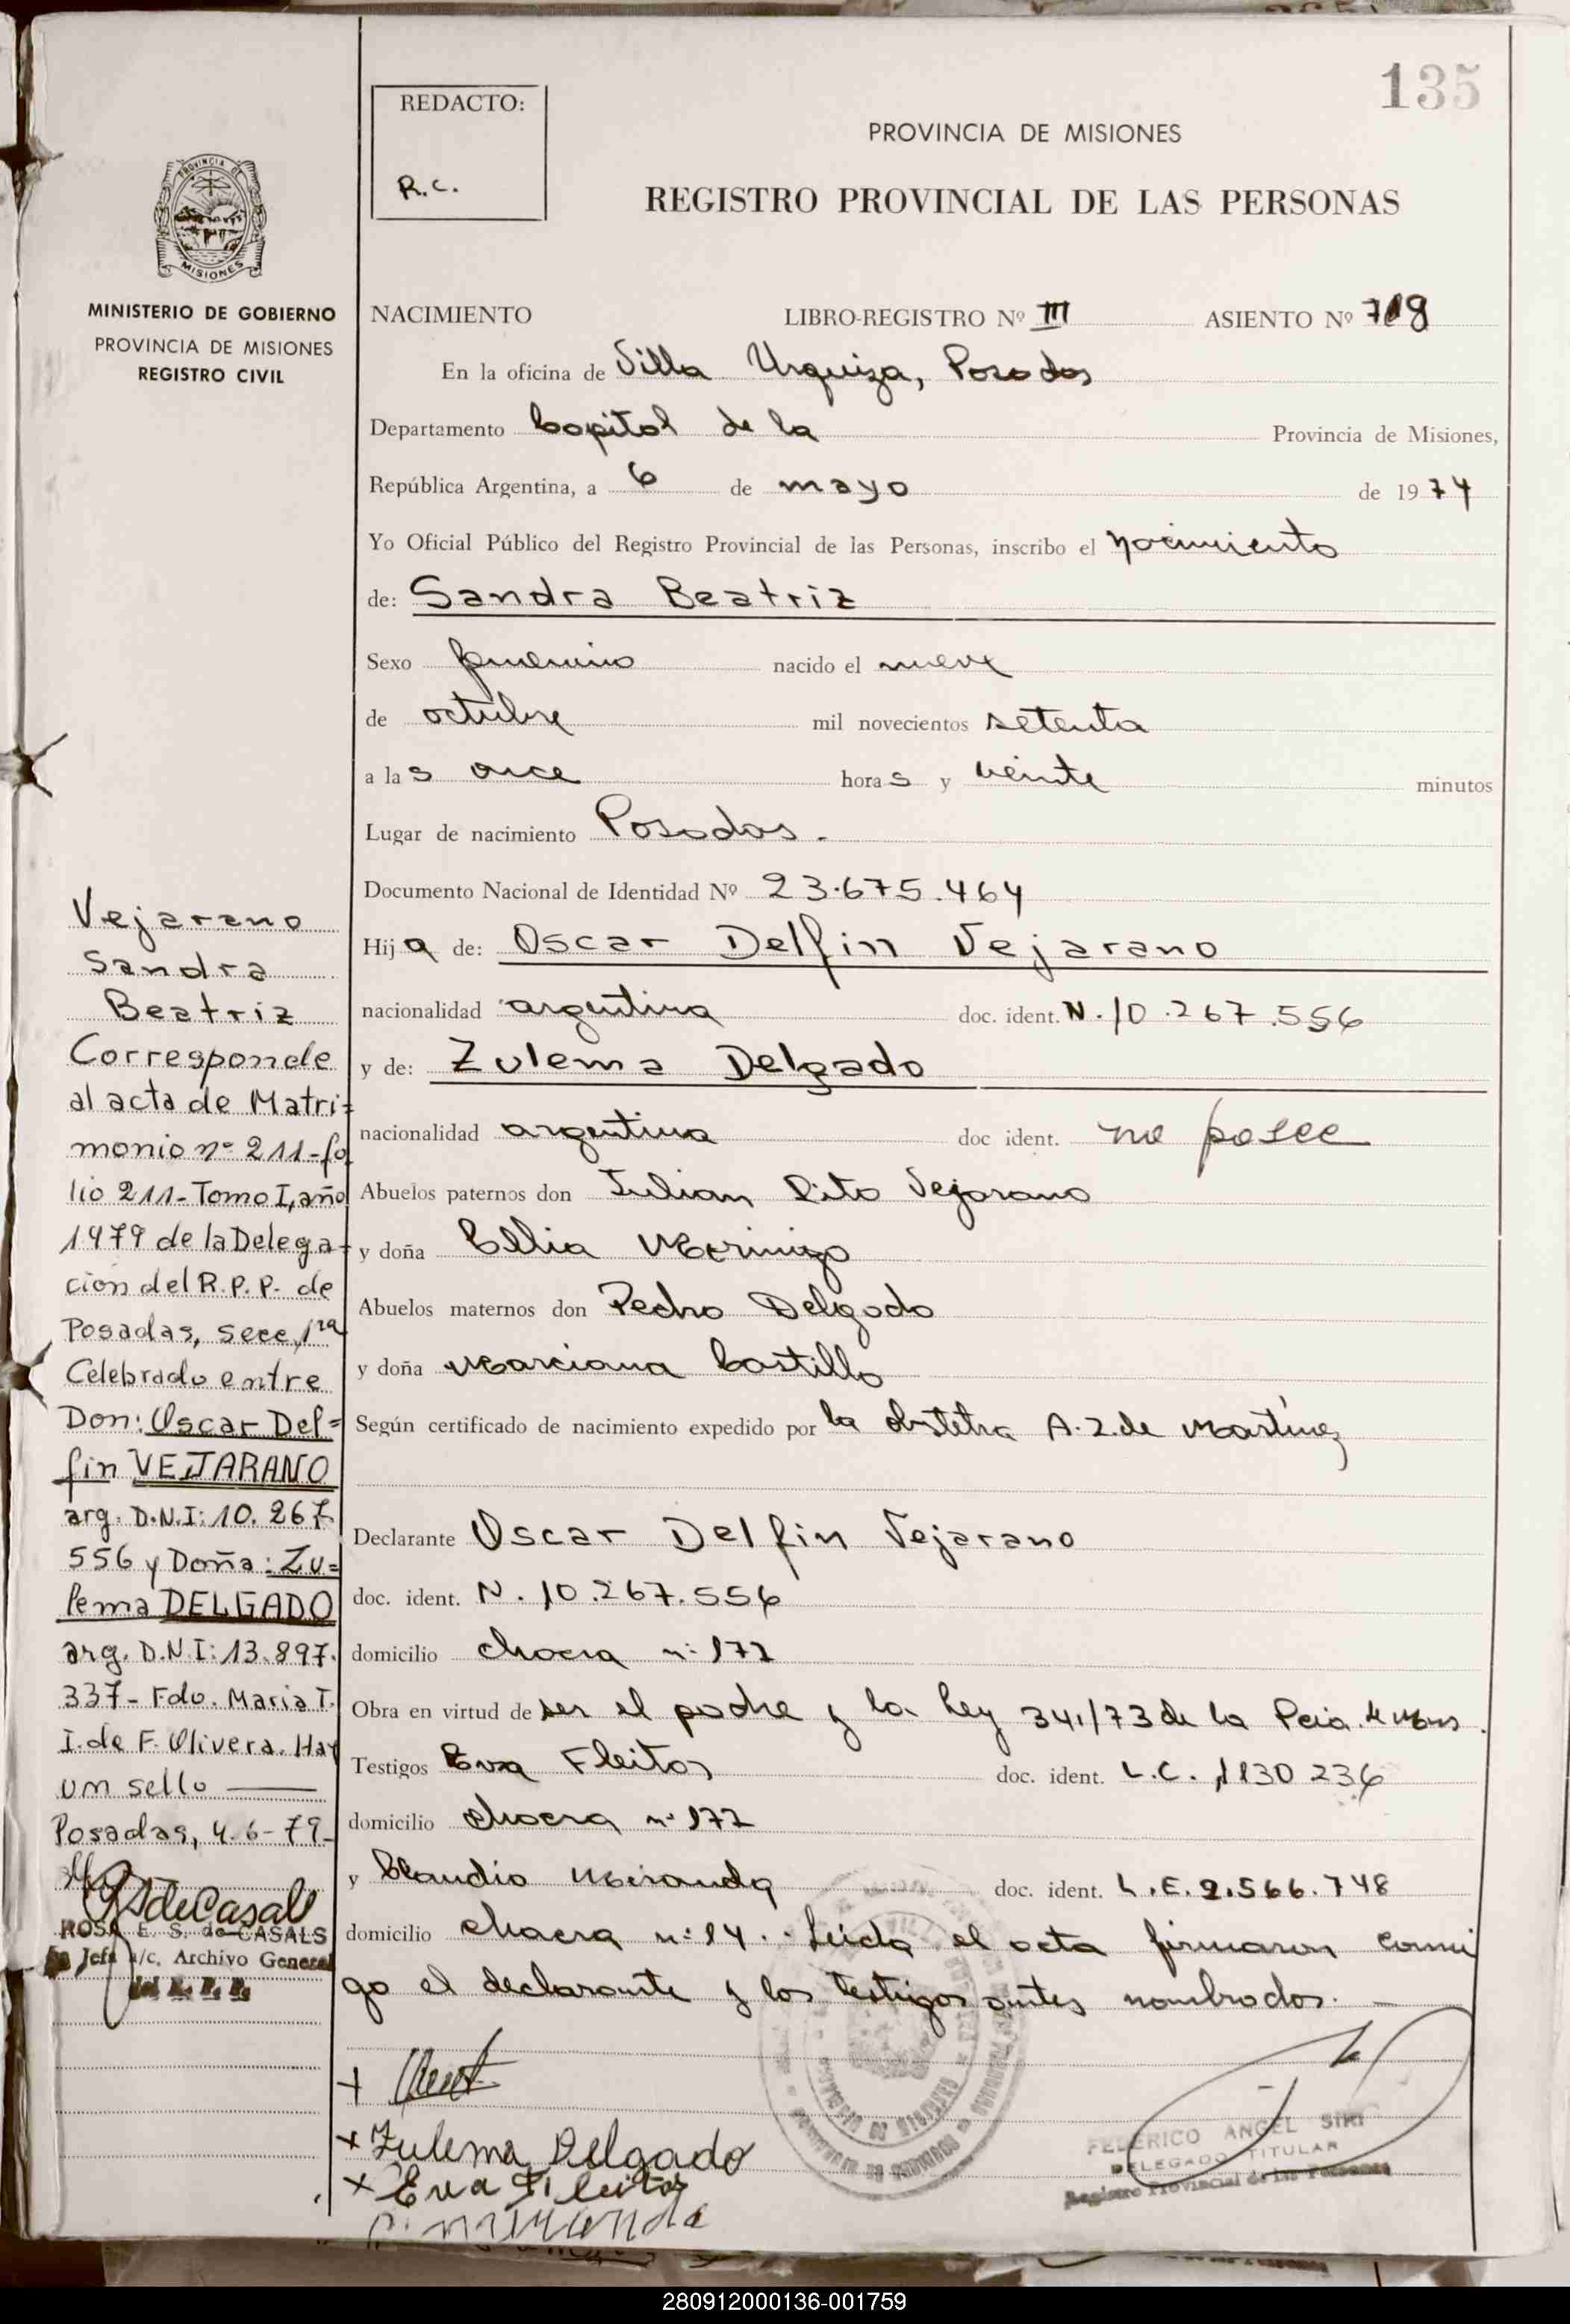 135
REDACTO:
R.C.
PROVINCIA DE MISIONES
REGISTRO PROVINCIAL DE LAS PERSONAS
PROVINCIA DE
MISIONES
MINISTERIO DE GOBIERNO
PROVINCIA DE MISIONES
REGISTRO CIVIL
NACIMIENTO LIBRO-REGISTRO Nº III ASIENTO Nº 718
En la oficina de Villa Urquiza, Posadas
Departamento Capital de la Provincia de Misiones,
República Argentina, a 6 de mayo de 1974
Yo Oficial Público del Registro Provincial de las Personas, inscribo el nacimiento
de: Sandra Beatriz
Sexo femenino nacido el nueve
de octubre mil novecientos setenta
a las once horas y veinte minutos
Lugar de nacimiento Posadas.
Documento Nacional de Identidad Nº 23.675.464
Hija de: Oscar Delfin Vejarano
nacionalidad argentina doc. ident. N. 10.267.556
y de: Zulema Delgado
nacionalidad argentina doc ident. no posee
Abuelos paternos don Julian Vejarano
y doña Merinigo
Abuelos maternos don Pedro Delgado
y doña Marciana Castillo
Según certificado de nacimiento expedido por la obstetra A.Z. de Martínez
Declarante Oscar Delfin Vejarano
doc. ident. N. 10.267.556
domicilio chacra nº 172
Obra en virtud de ser el padre y la Ley 341/73 de la Pcia. de Mnes.
Testigos Eva Fleitas doc. ident. L.C. 1130236
domicilio chacra nº 172
y Claudio Miranda doc. ident. L.E. 2.566.748
domicilio chacra nº 14. Leida el acta firmaron conmi
go el declarante y los testigos antes nombrados.
Vejarano
Sandra
Beatriz
Corresponde
al acta de Matri=
monio nº 211-fo
lio 211-Tomo I, año
1979 de la Delega-
ción del R.P.P. de
Posadas, secc, 1ra
Celebrado entre
Don: Oscar Del=
fin VEJARANO
arg. D.N.I: 10.267.
556 y Doña: Zu=
lema DELGADO
arg. D.N.I: 13.897.
337- Fdo. Maria T.
I. de F. Olivera. Hay
um sello
Posadas, 4-6-79-
RSdeCasals
ROSA E. S. de CASALS
Jefe a/c. Archivo General
del R. P. P.
+ Zulema Delgado
+ Eva Fleitas
C. Miranda
FEDERICO ANGEL SIRI
DELEGADO TITULAR
Registro Provincial de las Personas
280912000136-001759